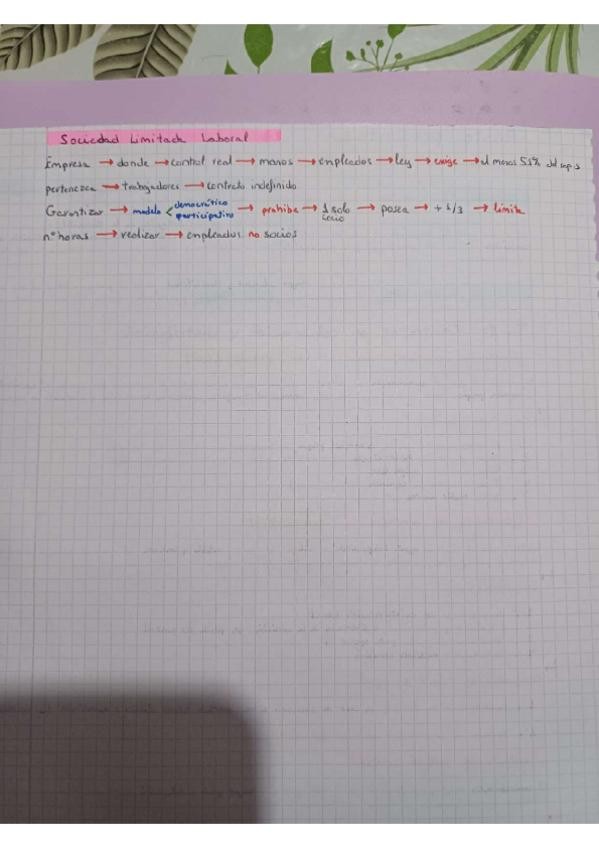 Sociedad Limitada Laboral
Empresa → donde → control real → manos → empleados → ley → exige → al menos 51% del
pertenezca → trabajadores → contrato indefinido
Garantizar → modelo < democrático participativo → prohibe → 1 solo socio → posea → + 1/3 → limita
nº horas → realizar → empleados no socios